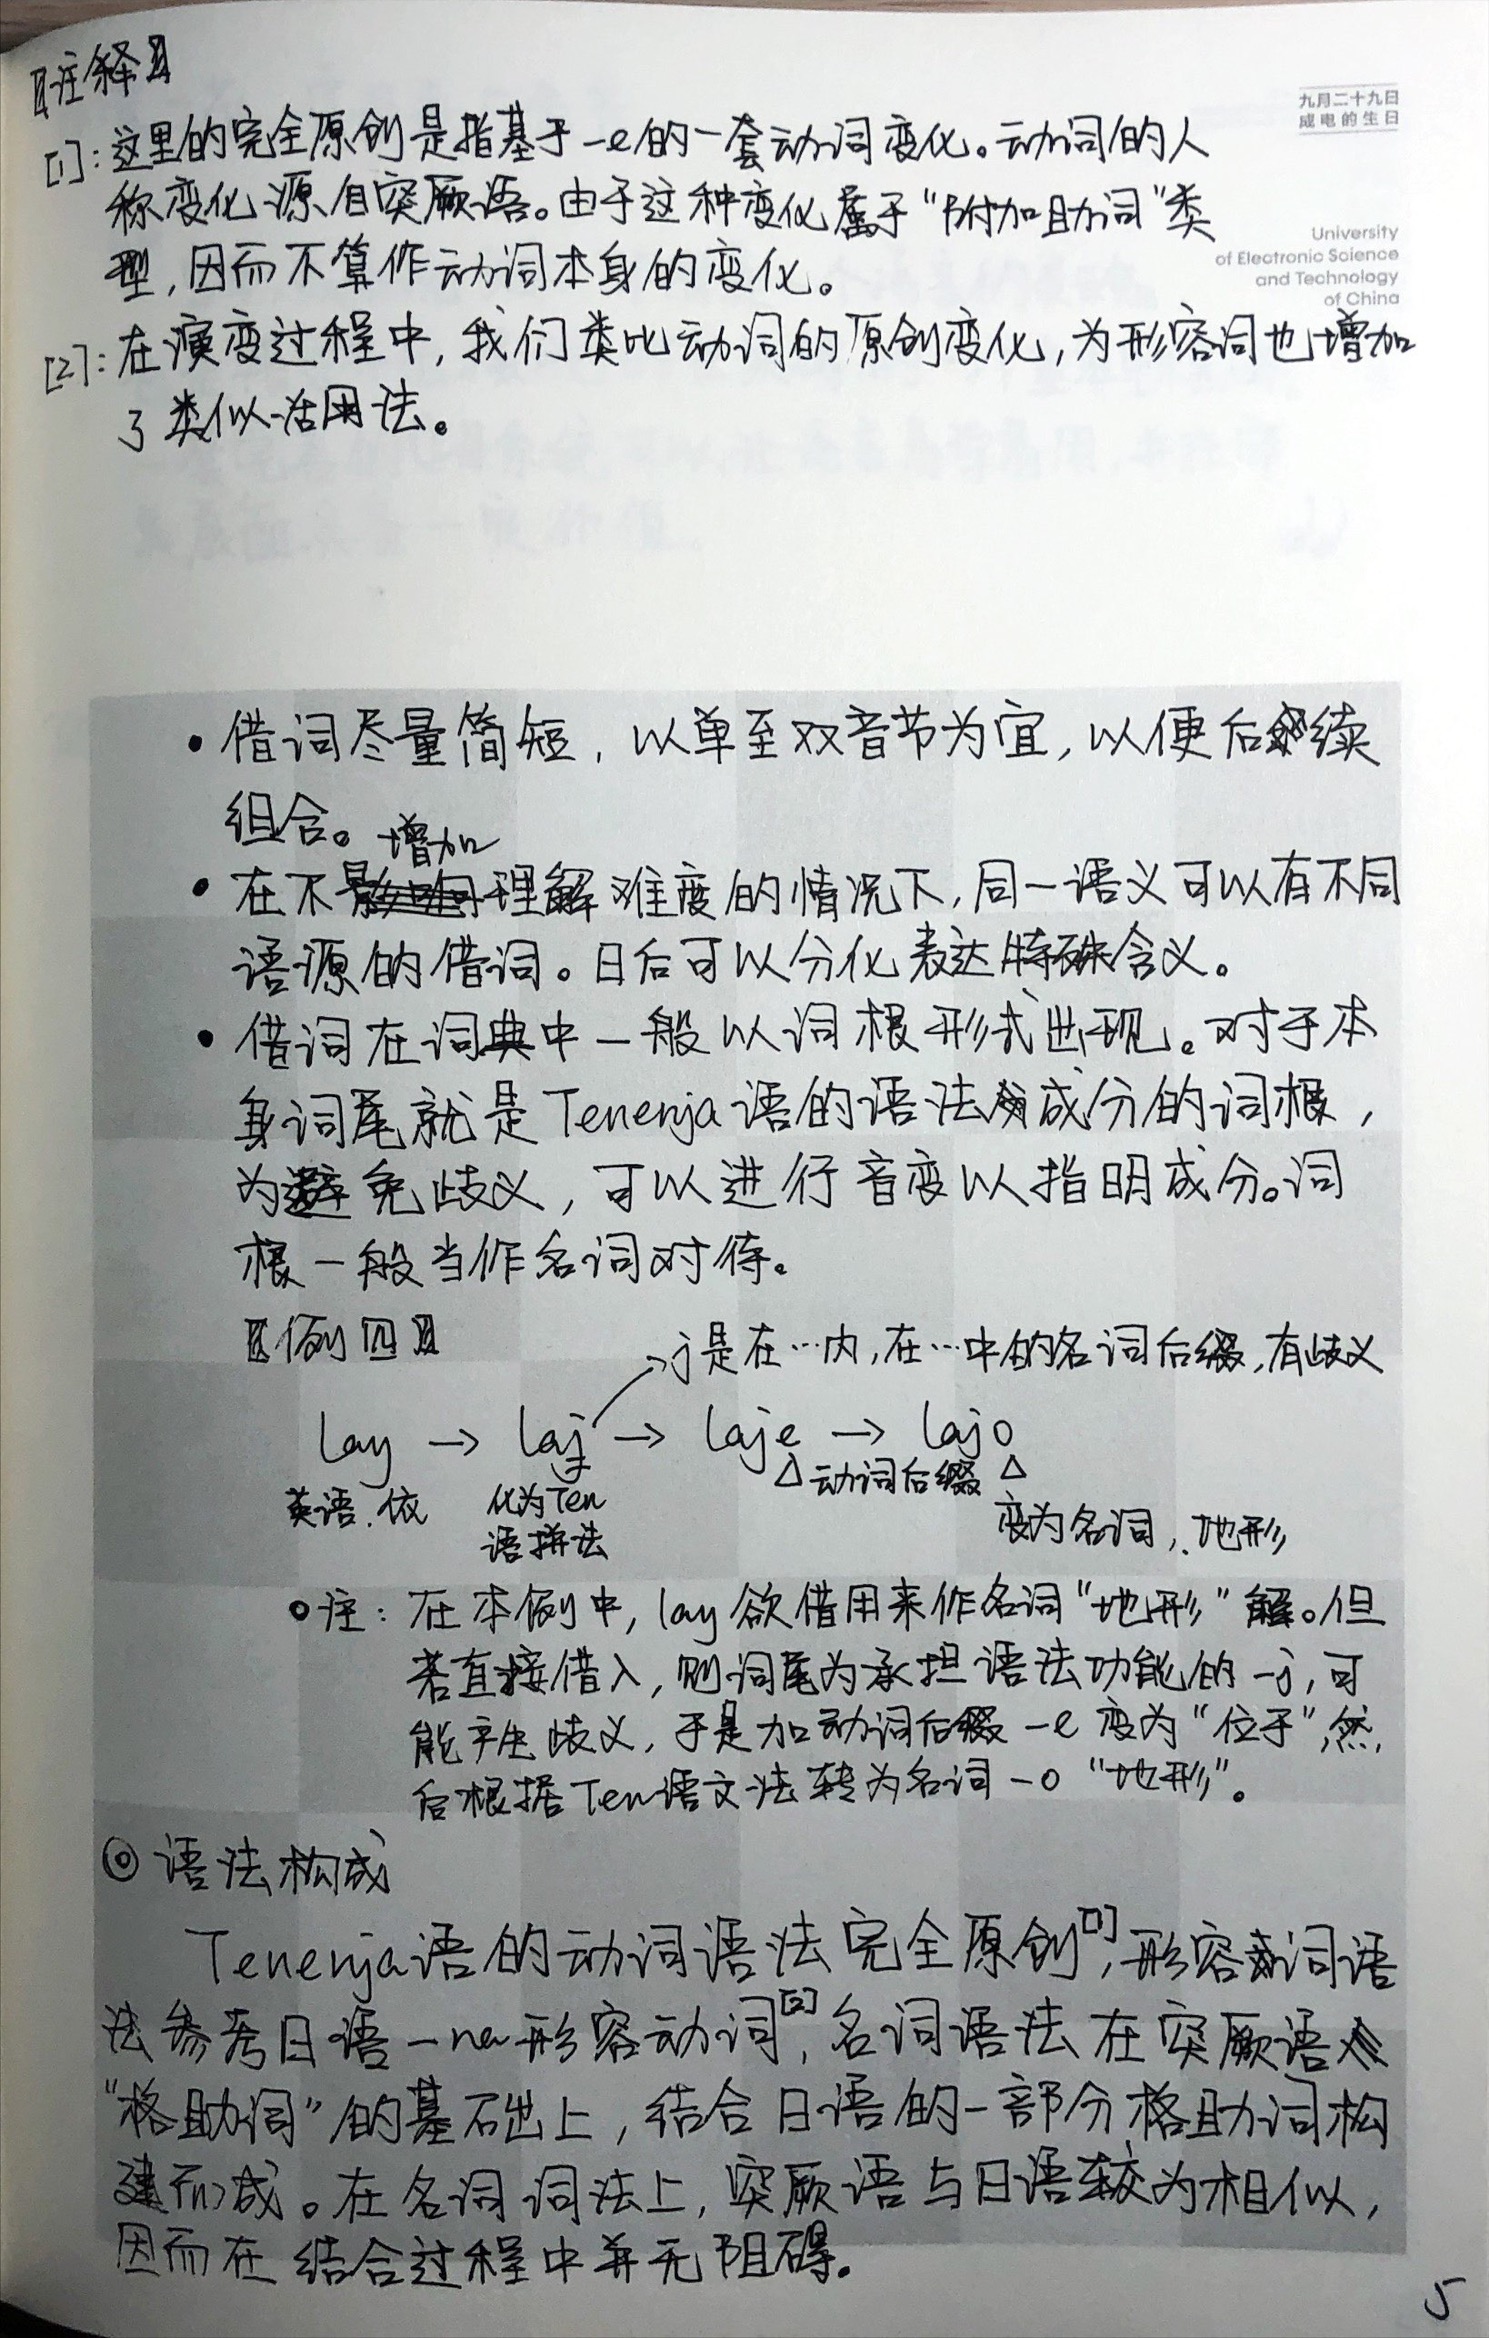 〖注释〗
九月二十九日
成电的生日
[1]：这里的完全原创是指基于-e的一套动词变化。动词的人
称变化源自突厥语。由于这种变化属于“附加助词”类
型，因而不算作动词本身的变化。
University
of Electronic Science
and Technology
of China
[2]：在演变过程中，我们类比动词的原创变化，为形容词也增加
了类似活用法。
• 借词尽量简短，以单至双音节为宜，以便后续
组合。
增加
• 在不理解难度的情况下，同一语义可以有不同
语源的借词。日后可以分化表达特殊含义。
• 借词在词典中一般以词根形式出现。对于本
身词尾就是Tenenja语的语法成分的词根，
为避免歧义，可以进行音变以指明成分。词
根一般当作名词对待。
〖例四〗
j是在…内，在…中的名词后缀，有歧义
lay → laj → laje → lajo
△动词后缀 △
英语.依 化为Ten
语拼法
变为名词，地形
注：在本例中，lay欲借用来作名词“地形”解。但
若直接借入，则词尾为承担语法功能的-j，可
能产生歧义，于是加动词后缀-e变为“位于”，然
后根据Ten语文法转为名词-o“地形”。
◎ 语法构成
Tenenja语的动词语法完全原创[1]，形容词语
法参考日语-na形容动词[2]，名词语法在突厥语
“格助词”的基础上，结合日语的一部分格助词构
建而成。在名词词法上，突厥语与日语较为相似，
因而在结合过程中并无阻碍。
5